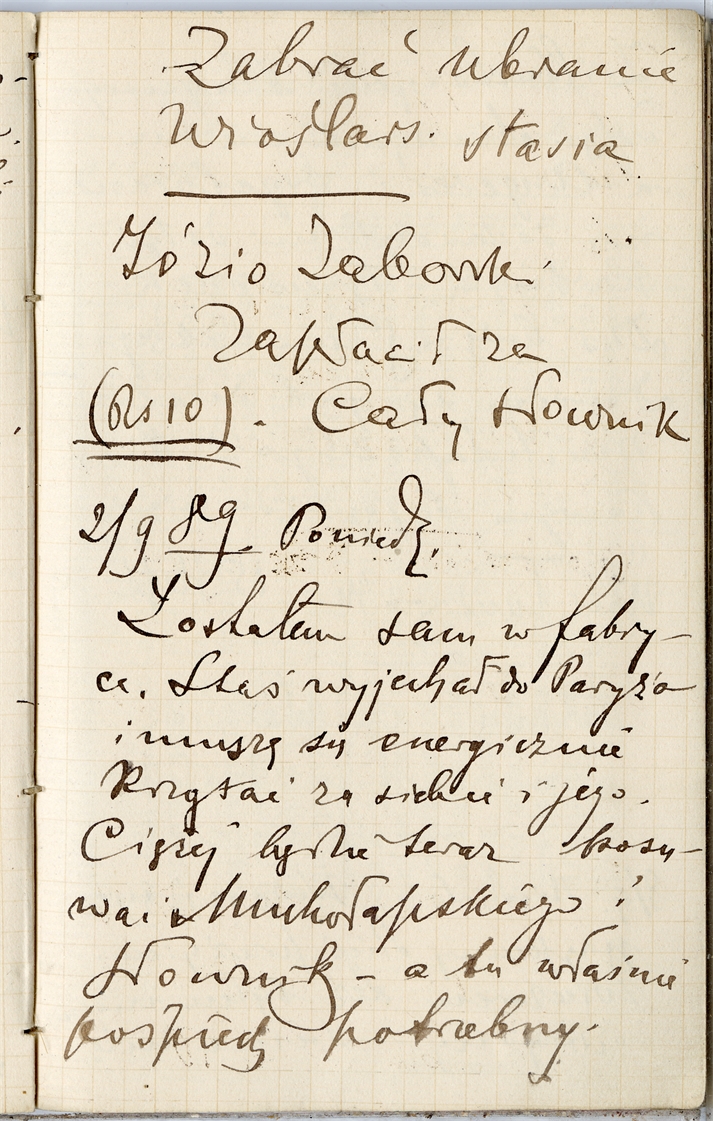 Zabrać ubranie
Wioślars. Stasia
Józio Zaborski
Zapłacił za
(Rs 10). Cały słownik
2/9 89 Poniedz.
Zostałem sam w fabry-
ce. Staś wyjechał do Paryża
i muszę się energicznie
krzątać za siebie i jego.
Ciężej będzie teraz
Muchołapskiego i
słownik - a tu właśnie
pośpiech potrzebny.